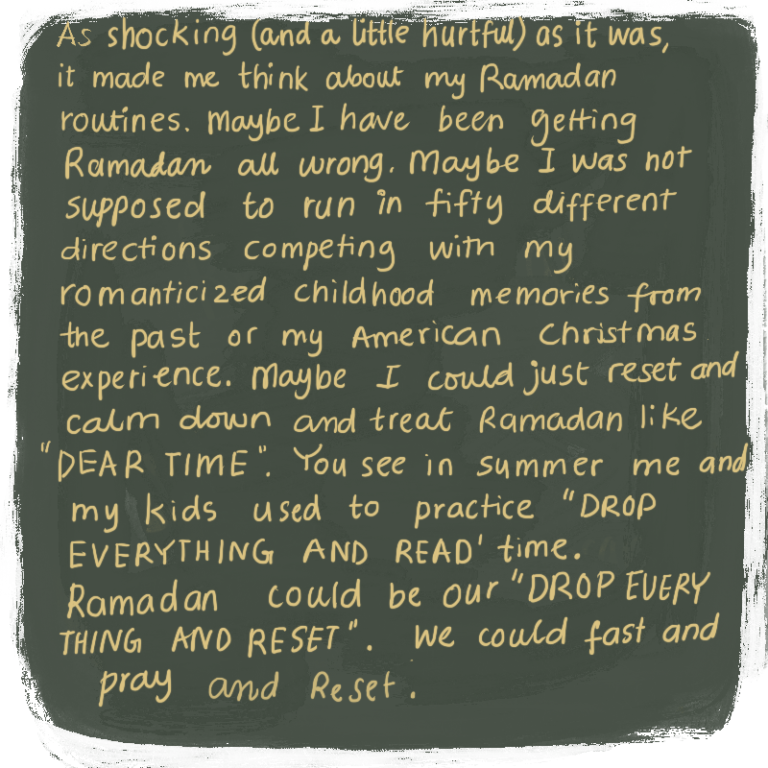 As shocking (and a little hurtful) as it was,
it made me think about my Ramadan
routines. Maybe I have been getting
Ramadan all wrong. Maybe I was not
supposed to run in fifty different
directions competing with my
romanticized childhood memories from
the past or my American Christmas
experience. Maybe I could just reset and
calm down and treat Ramadan like
"DEAR TIME". You see in summer me and
my kids used to practice "DROP
EVERYTHING AND READ' time.
Ramadan could be our "DROP EVERY
THING AND RESET". We could fast and
pray and Reset.